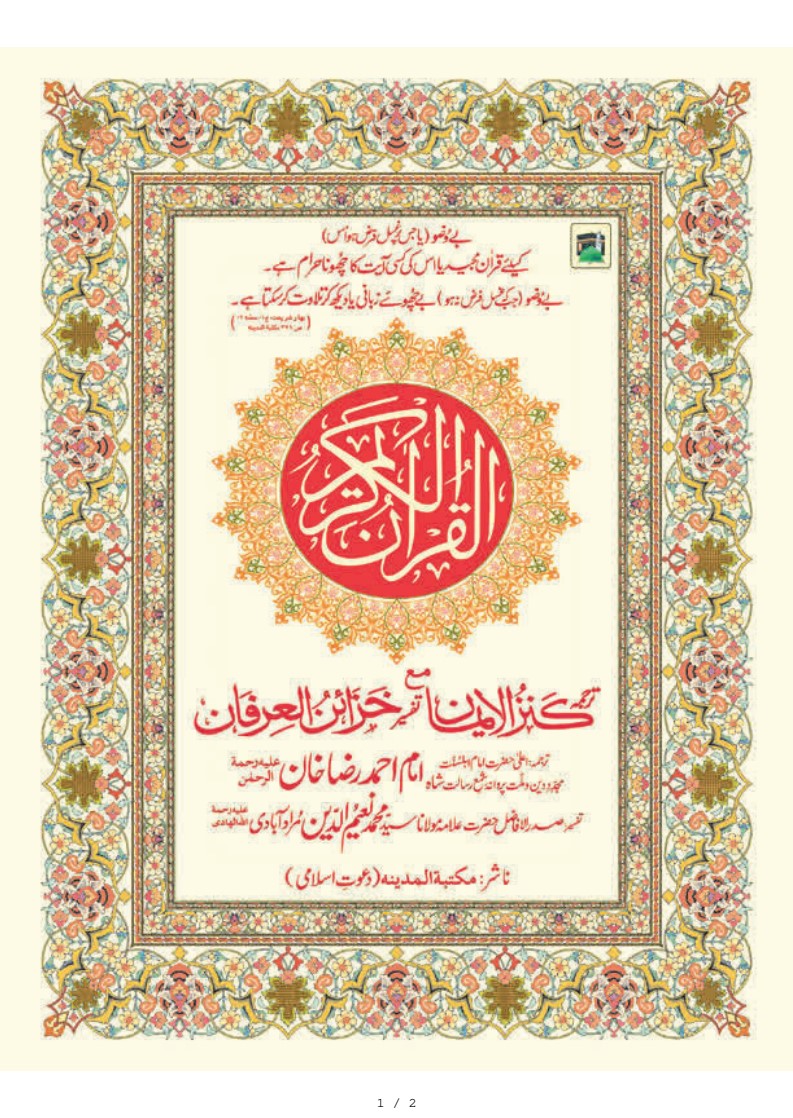 بے وُضو (یا جس پر غسل فرض ہو اُس)
کیلئے قراٰن مجید یا اس کی کسی آیت کا چُھونا حرام ہے۔
بے وُضو (جبکہ غسل فرض نہ ہو) بے چُھوئے زبانی یا دیکھ کر تلاوت کر سکتا ہے۔
(بہارِ شریعت، ج۱، حصّہ ۲
ص ۳۲۶ مکتبۃ المدینہ)
القرآن الکریم
ترجمۂ کنز الایمان مع تفسیر خزائن العرفان
ترجمہ: اعلیٰ حضرت امام اہلسنّت
مجدّدِ دین و ملّت پروانۂ شمع رسالت شاہ امام احمد رضا خان علیہ رحمۃ الرحمٰن
تفسیر: صدر الافاضل حضرت علامہ مولانا سیّد محمد نعیم الدین مُراد آبادی علیہ رحمۃ اللہ الھادی
ناشر: مکتبۃ المدینہ (دعوتِ اسلامی)
1 / 2